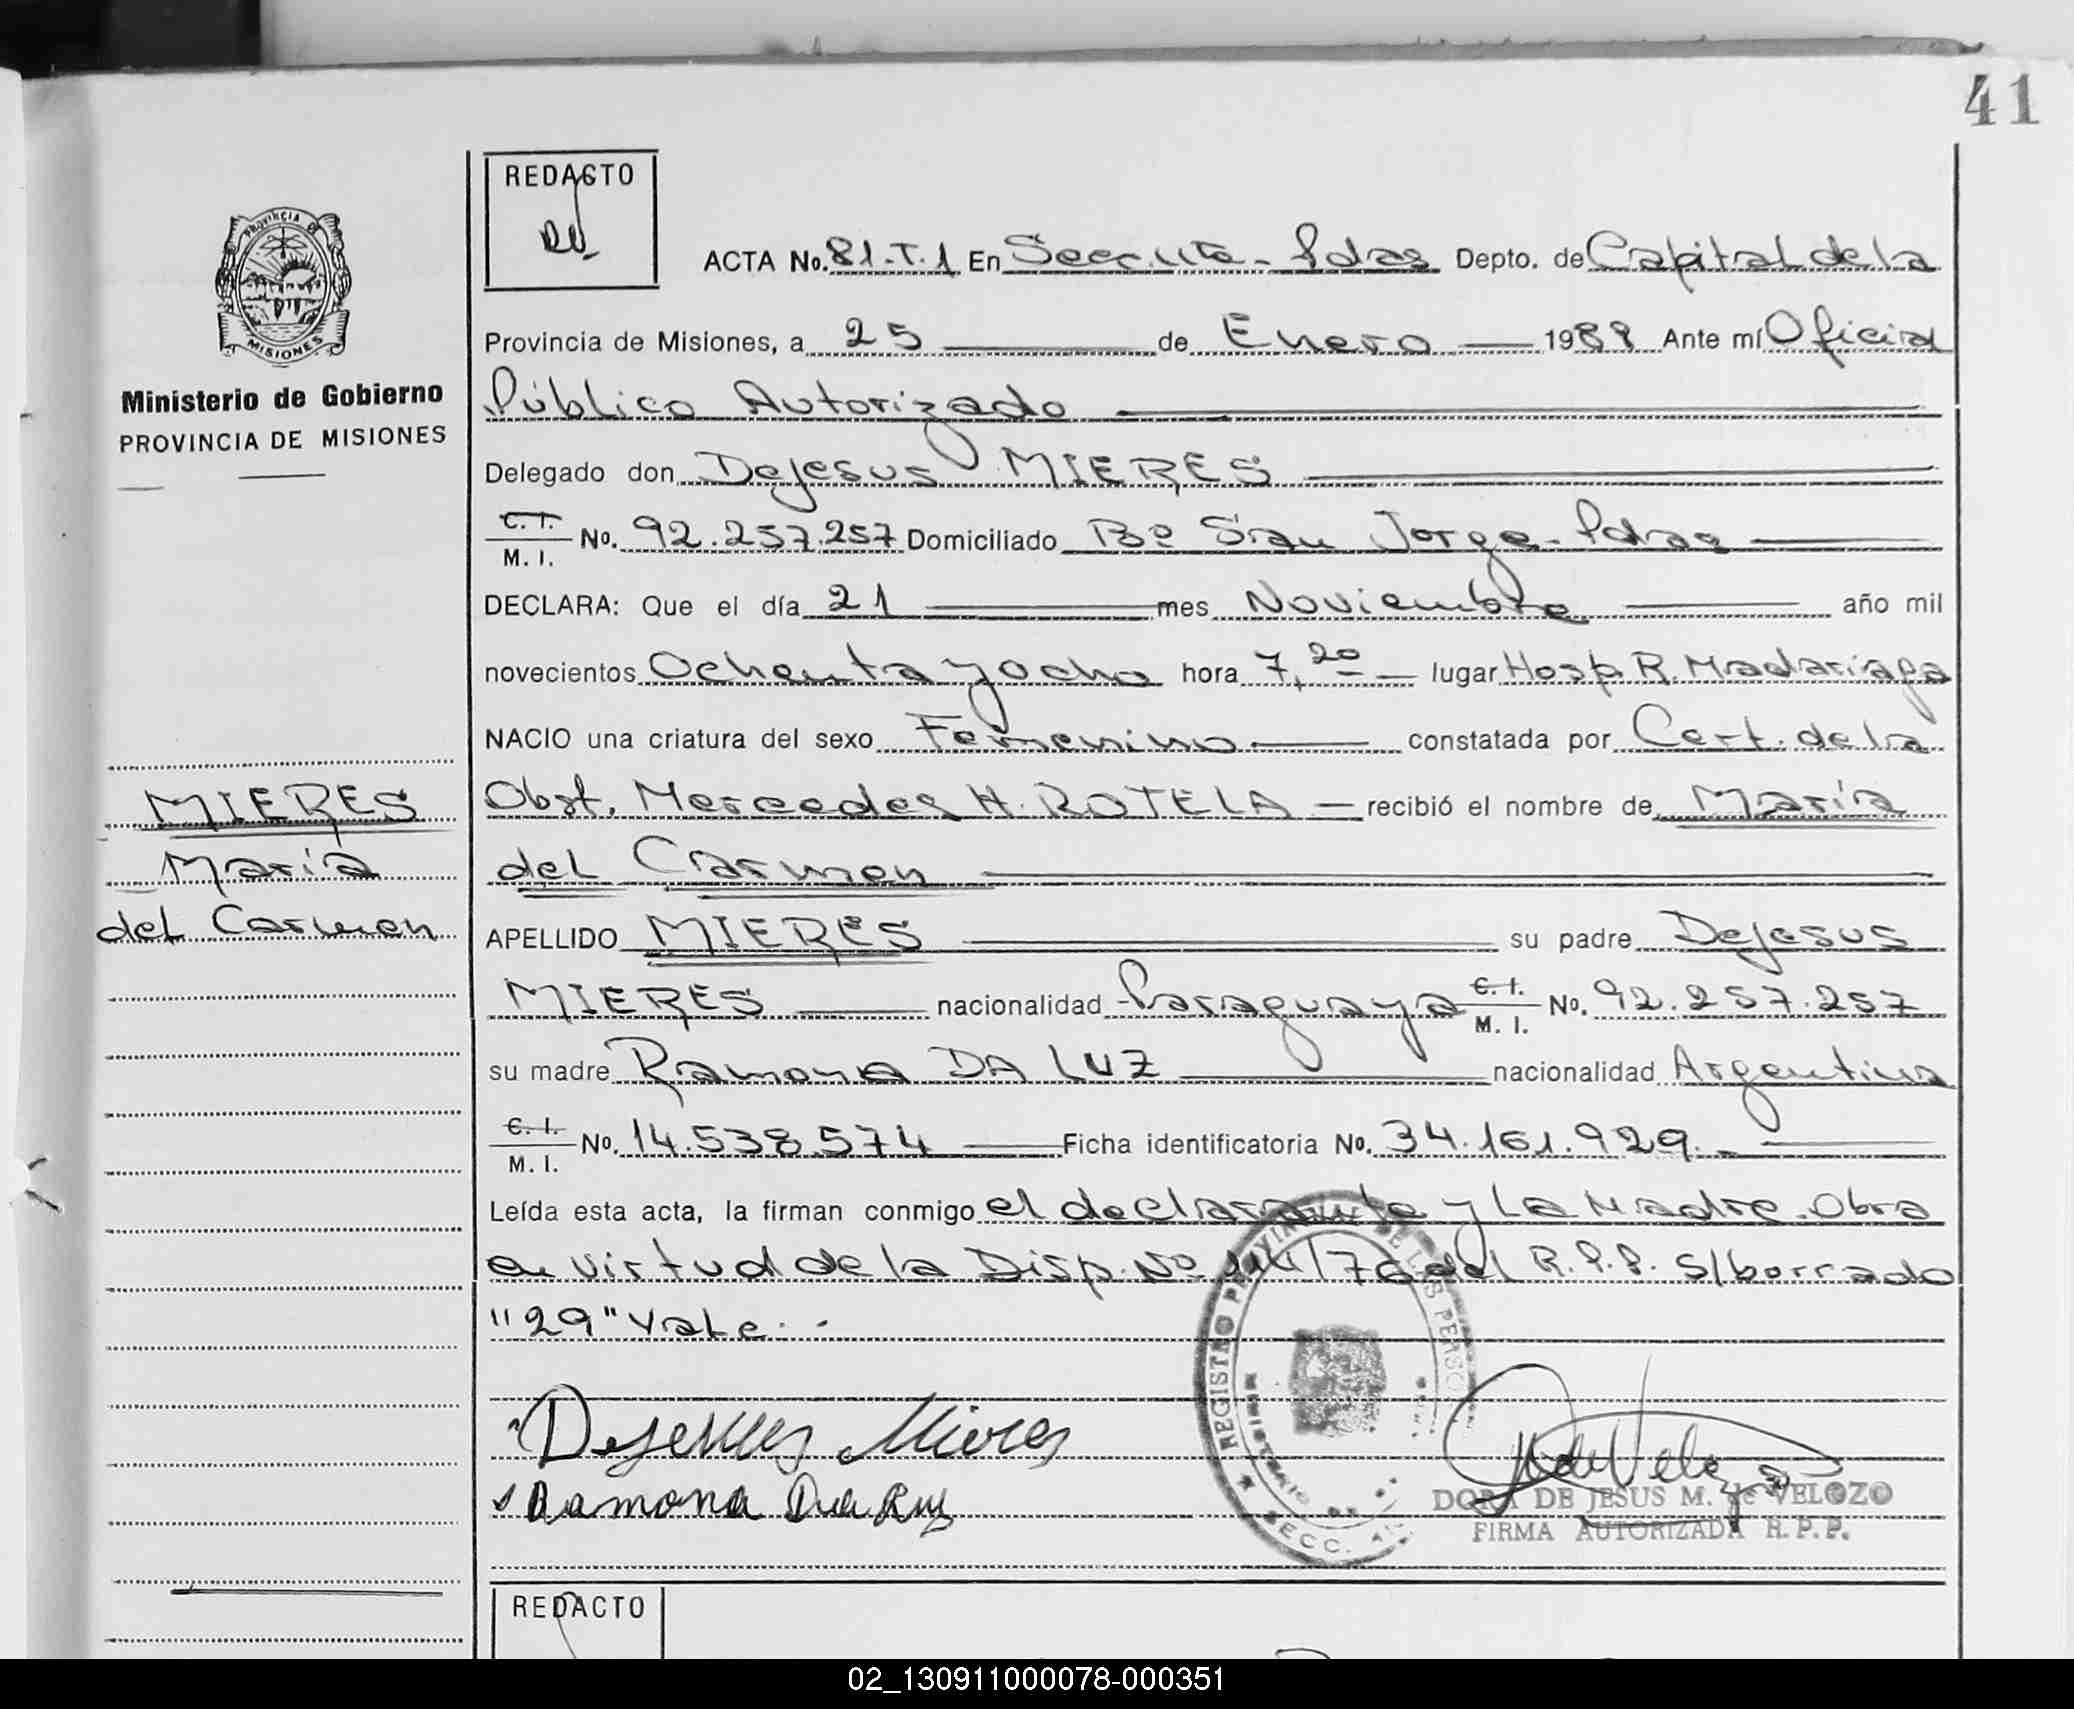 41
REDACTO
ACTA No. 81-T.1 En Secc. 4ta - Pdas Depto. de Capital de la
PROVINCIA DE
MISIONES
Provincia de Misiones, a 25 de Enero 1989 Ante mí Oficial
Ministerio de Gobierno
PROVINCIA DE MISIONES
Público Autorizado
Delegado don Dejesus MIERES
C. I.
M. I.
No. 92.257.257 Domiciliado Bº San Jorge - Pdas
DECLARA: Que el día 21 mes Noviembre año mil
novecientos Ochenta y ocho hora 7,20 lugar Hosp R. Madariaga
NACIO una criatura del sexo Femenino constatada por Cert. de la
MIERES
Obst. Mercedes H. ROTELA recibió el nombre de María
María
del Carmen
del Carmen
APELLIDO MIERES su padre Dejesus
MIERES nacionalidad Paraguaya C. I. M. I. No. 92.257.257
su madre Ramona DA LUZ nacionalidad Argentina
C. I.
M. I.
No. 14.538.574 Ficha identificatoria No. 34.161.929.
Leída esta acta, la firman conmigo el declarante y La Madre. Obra
en virtud de la Disp. Nº /76 del R.P.P. S/borrado
"29" Vale.
Dejesus Mieres
Ramona Da Luz
REGISTRO PROVINCIAL DE LAS PERSO
SECC.
DORA DE JESUS M. de VELOZO
FIRMA AUTORIZADA R.P.P.
REDACTO
02_130911000078-000351